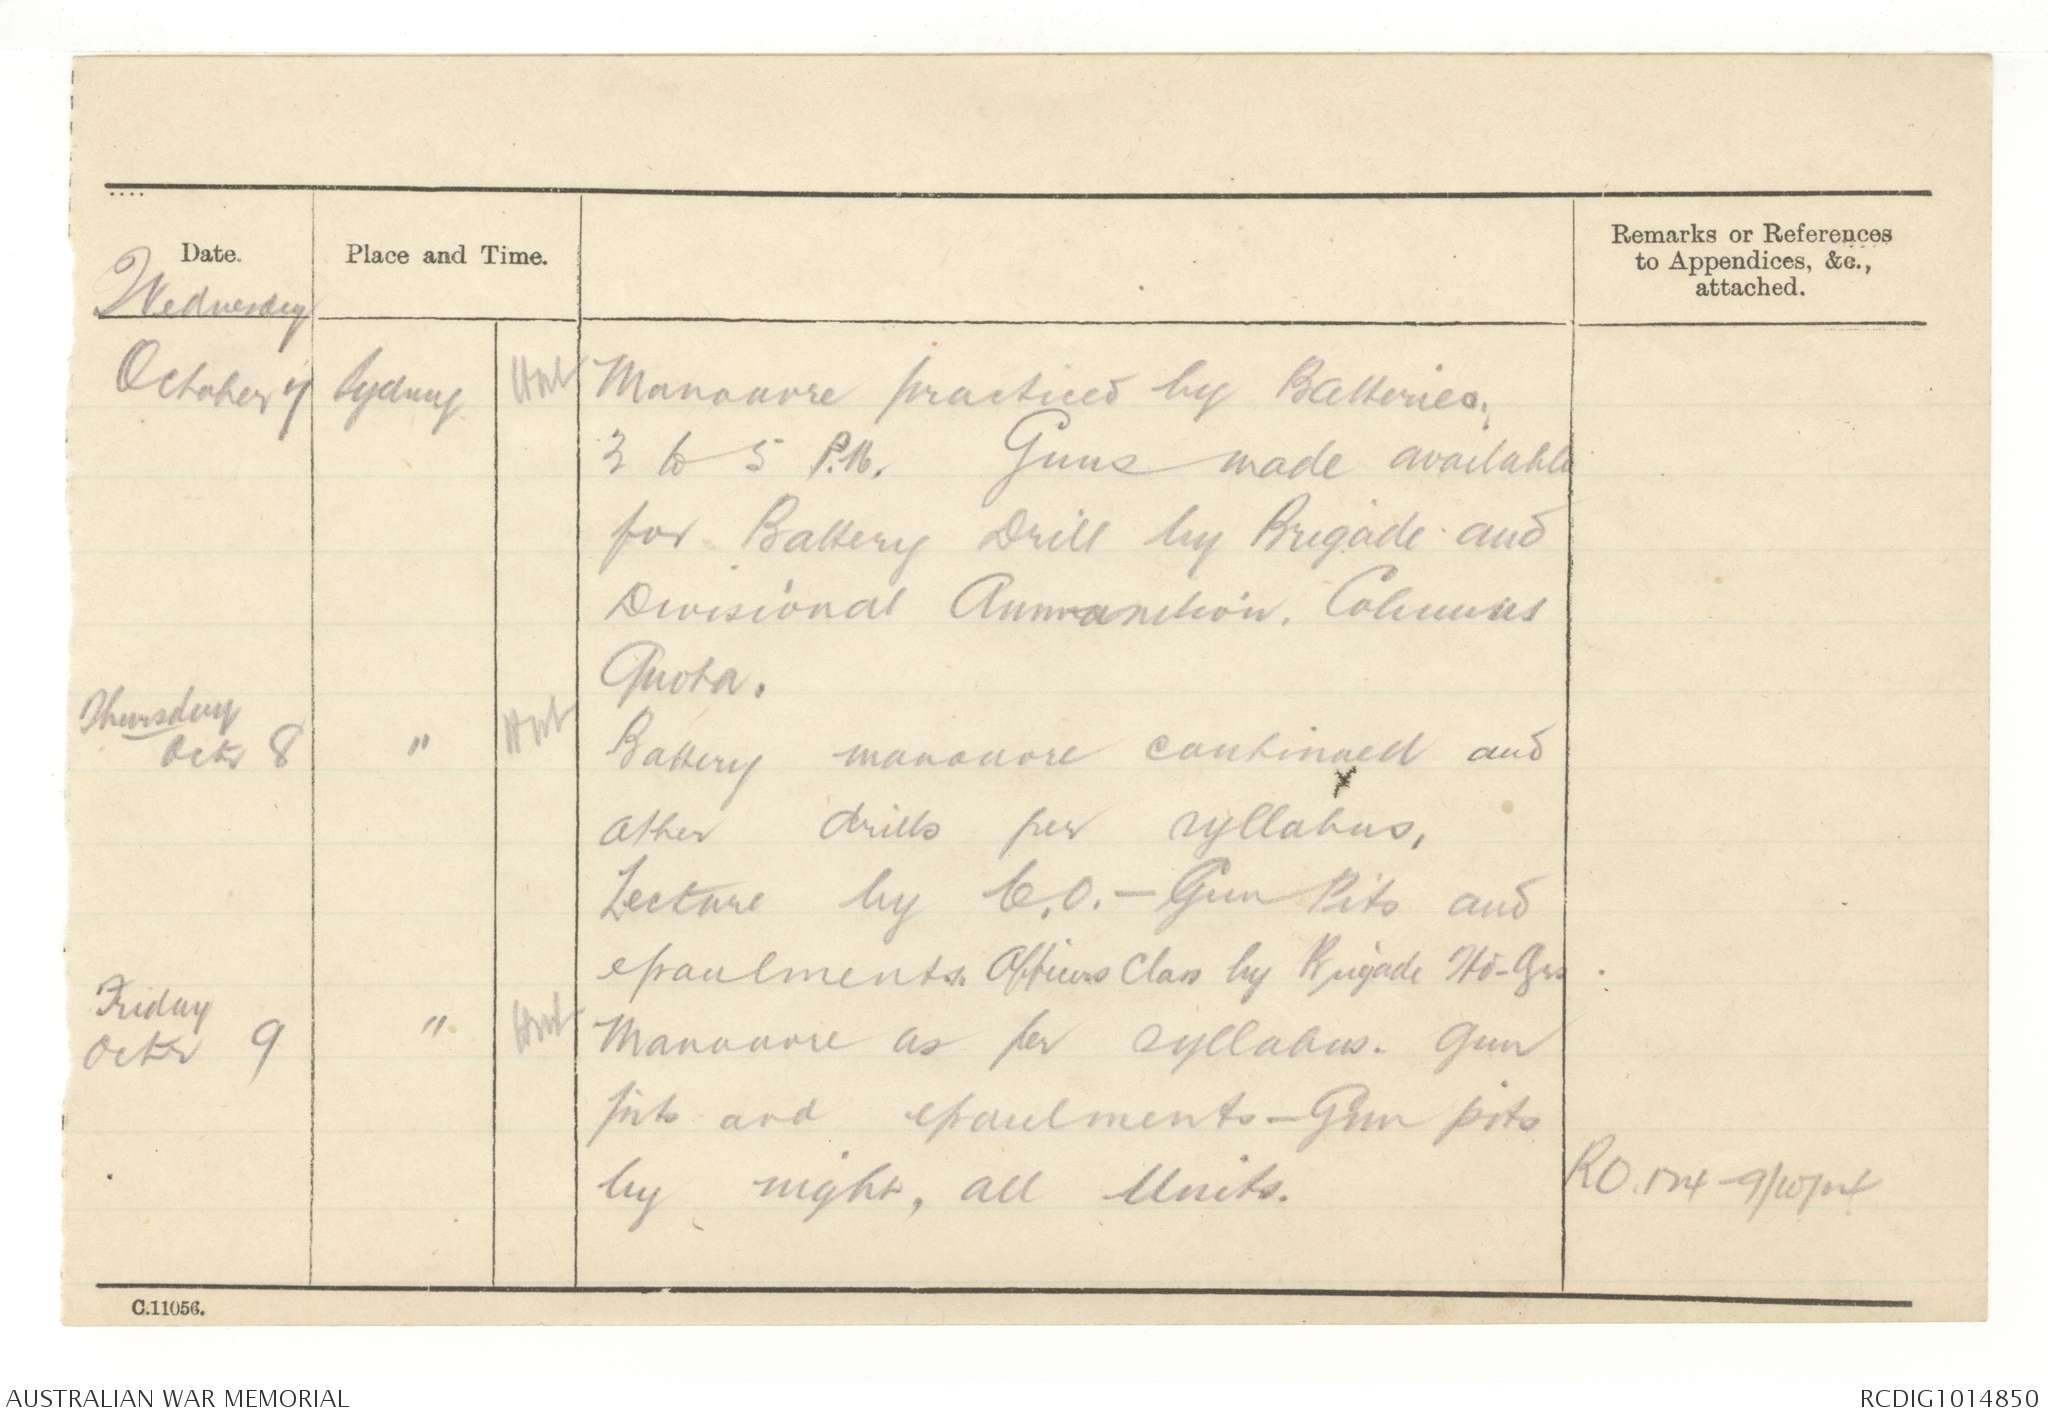 Date.
Place and Time.
Remarks or References
to Appendices, &c.,
attached.
Wednesday
October 7 Sydney Manouvre practiced by Batteries.
3 to 5 P.M. Guns made available
for Battery Drill by Brigade and
Divisional Ammunition. Columns
Quota.
Thursday
Octr 8 " Battery manouvre continued and
other drills per syllabus,
Lecture by C.O. — Gun Pits and
epaulments. Officers Class by Brigade Hd-Qrs.
Friday
Octr 9 " Manouvre as per syllabus. Gun
pits and epaulments — Gun pits
by night, all Units.
RO. 9/10/14
C.11056.
AUSTRALIAN WAR MEMORIAL
RCDIG1014850